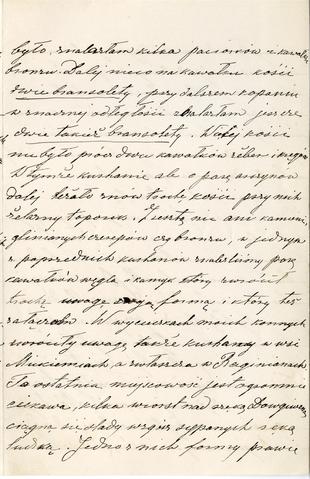 było, znalazłam kilka paciorków i kawałek
bronzu. Dalej nieco na kawałku kości
dwie bransolety, przy dalszem kopaniu
w znacznej odległości znalazłam jeszcze
dwie takież bransolety. Więcej kości
nie było prócz dwu kawałków żeber i
W tymże kurhanie ale o parę arszynów
dalej leżało znów trochę kości przy nich
żelazny toporek. Zresztą nie ani kamieni,
glinianych czerepów czy bronzu, w jednym
z poprzednich kurhanów znalazłam parę
kawałków węgla i kamyk który zwrócił
trochę uwagę swoją formą i który też
załączam. W wycieczkach moich konnych
zwróciły uwagę także kurhany w wsi
a zwłaszcza w Reginianach
Ta ostatnia miejscowość jest ogromnie
ciekawa, kilka wiorst nad rzeką
ciągną się ślady wzgórz sypanych ręką
ludzką. Jedno z nich formy prawie